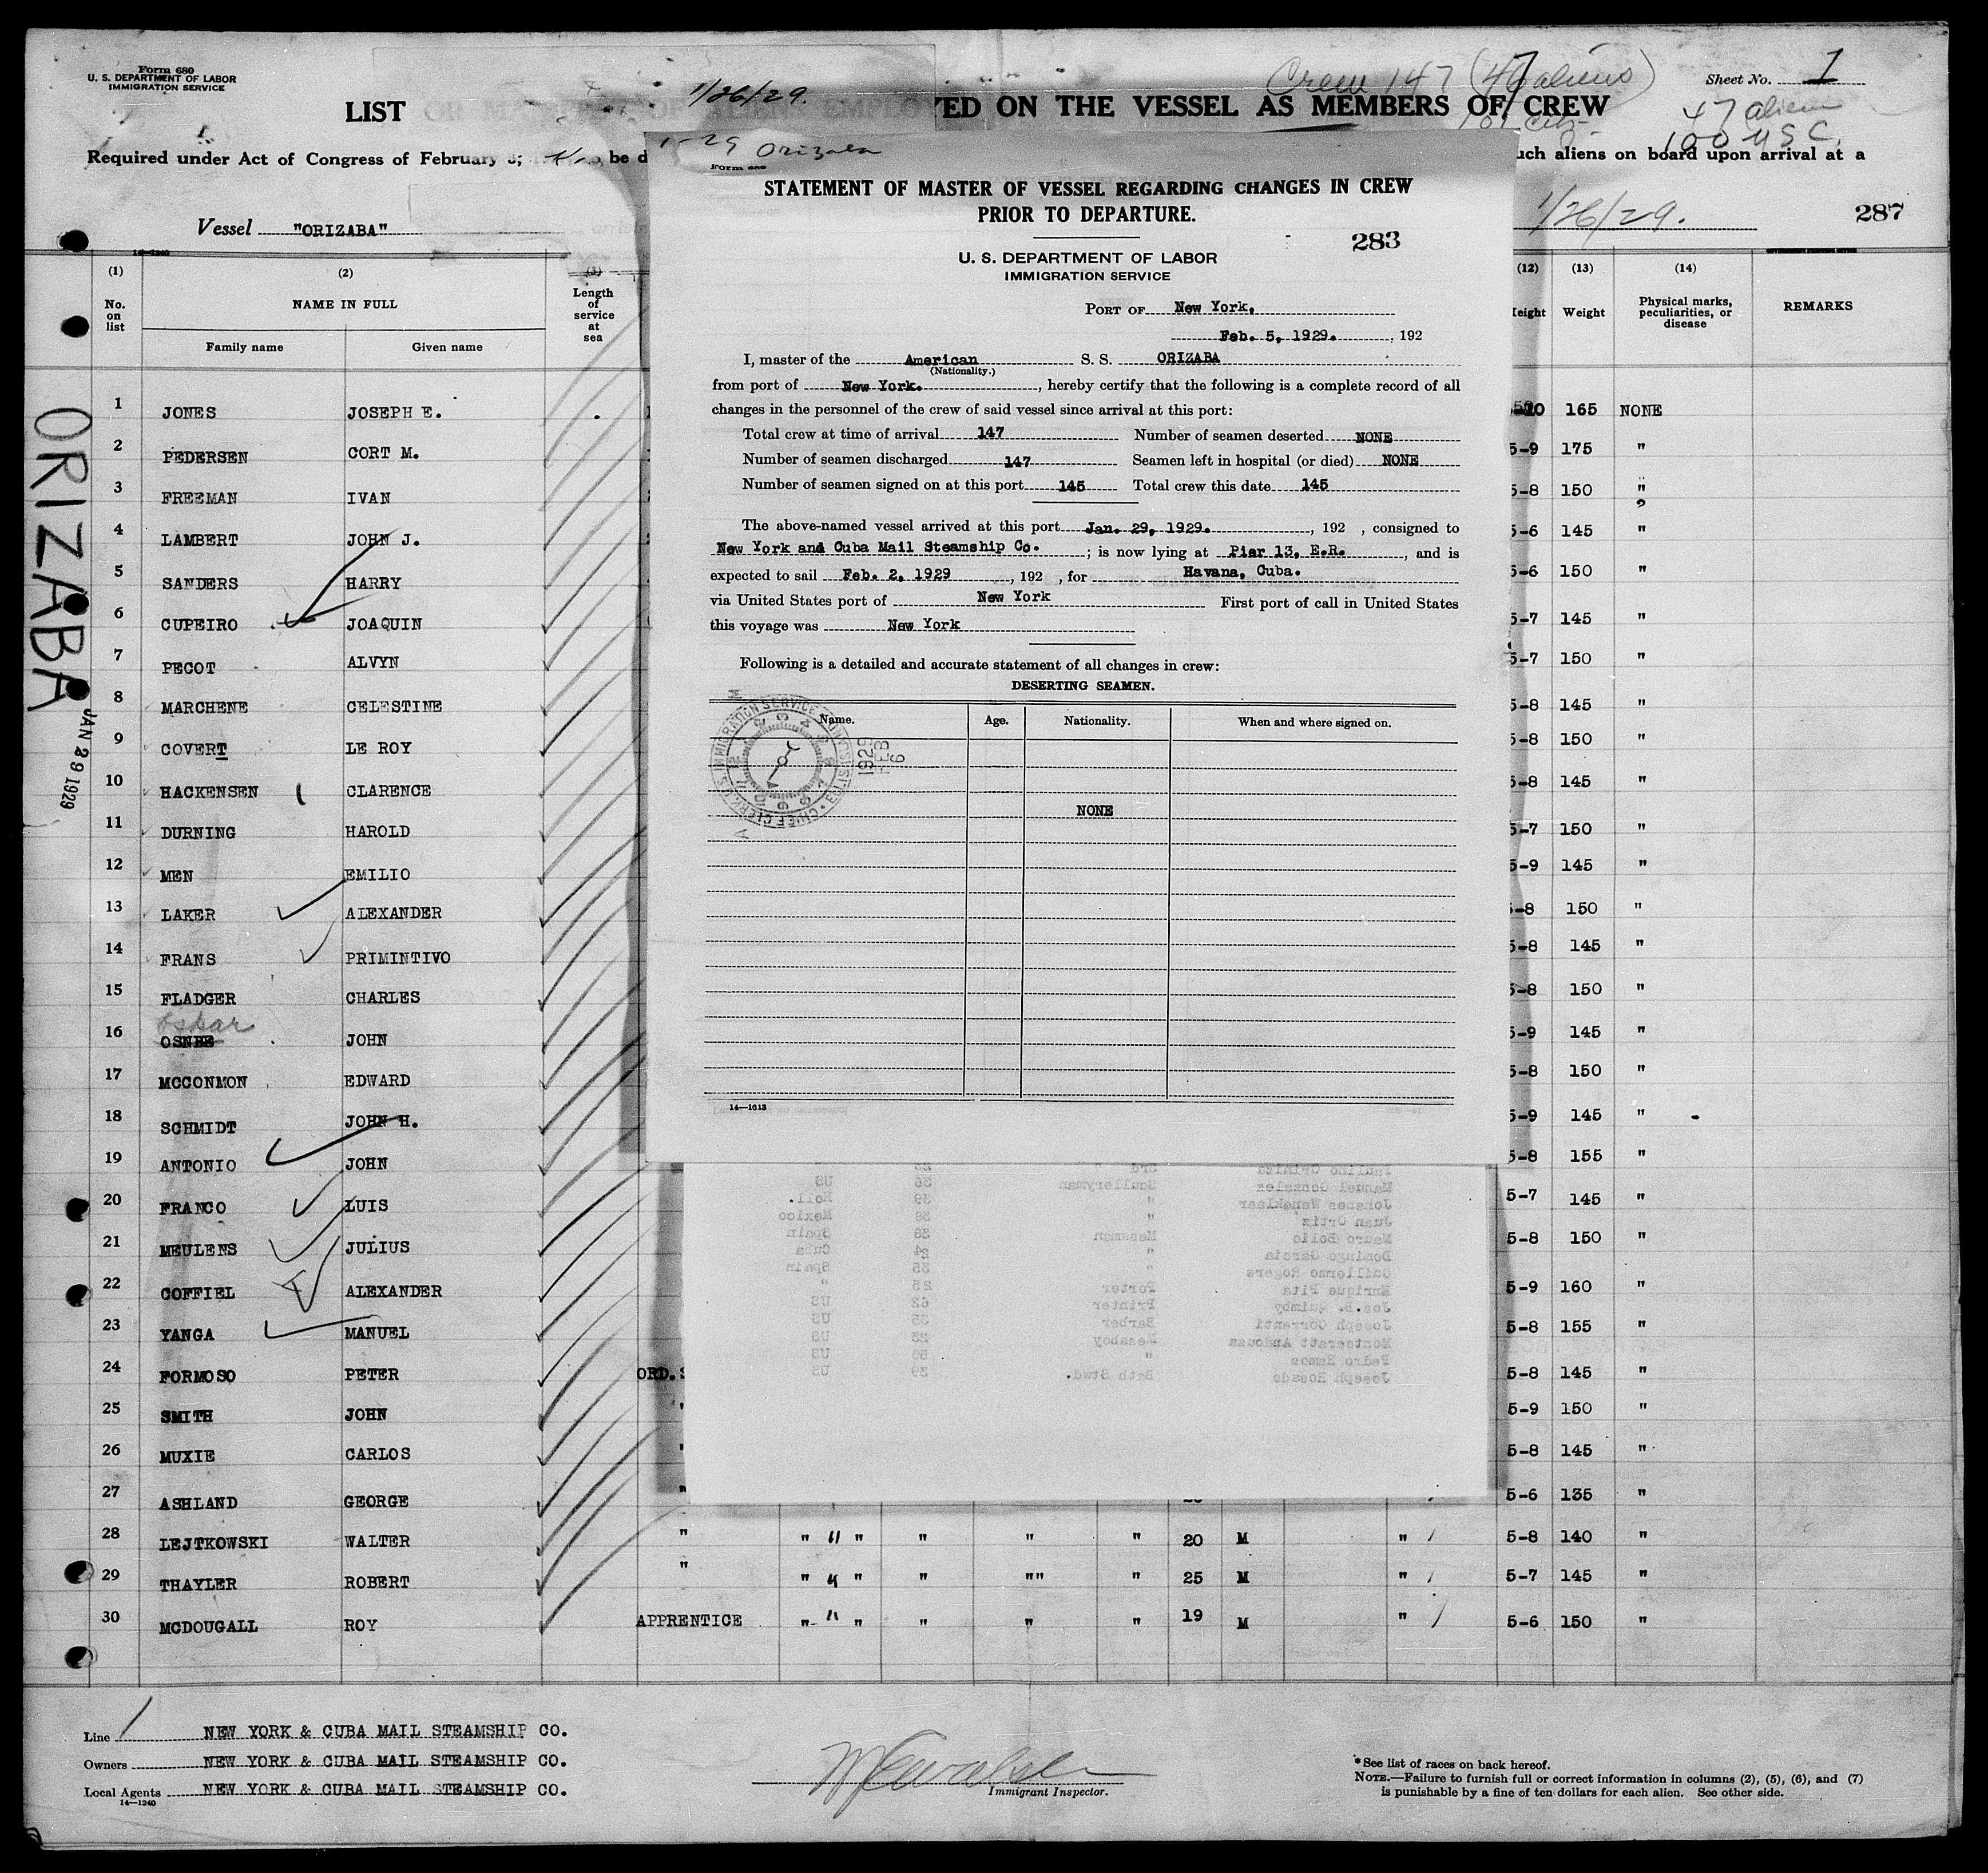 Form 680
U. S. DEPARTMENT OF LABOR
IMMIGRATION SERVICE
1/26/29.
Crew 147 (46 aliens)
Sheet No. 1
47 aliens
100 USC.
LIST OR MANIFEST OF ALIENS EMPLOYED ON THE VESSEL AS MEMBERS OF CREW
Required under Act of Congress of February 5, be d
uch aliens on board upon arrival at a
Vessel "ORIZABA"
1/26/29.
287
ORIZABA
JAN 29 1929
(1) (2) (3) (12) (13) (14)
No. on list
NAME IN FULL
Family name Given name
Length of service at sea
Height Weight Physical marks, peculiarities, or disease REMARKS
1 JONES JOSEPH E. 165 NONE
2 PEDERSEN CORT M. 5-9 175 "
3 FREEMAN IVAN 5-8 150 "
4 LAMBERT JOHN J. 5-6 145 "
5 SANDERS HARRY 5-6 150 "
6 CUPEIRO JOAQUIN 5-7 145 "
7 PECOT ALVYN 5-7 150 "
8 MARCHENE CELESTINE 5-8 145 "
9 COVERT LE ROY 5-8 150 "
10 HACKENSEN CLARENCE 5-8 145 "
11 DURNING HAROLD 5-7 150 "
12 MEN EMILIO 5-9 145 "
13 LAKER ALEXANDER 5-8 150 "
14 FRANS PRIMINTIVO 5-8 145 "
15 FLADGER CHARLES 5-8 150 "
Oskar
16 JOHN 5-9 145 "
17 MCCONMON EDWARD 5-8 150 "
18 SCHMIDT JOHN H. 5-9 145 "
19 ANTONIO JOHN 5-8 155 "
20 FRANCO LUIS 5-7 145 "
21 MEULENS JULIUS 5-8 150 "
22 COFFIEL ALEXANDER 5-9 160 "
23 YANGA MANUEL 5-8 155 "
24 FORMOSO PETER ORD. 5-8 145 "
25 SMITH JOHN " 5-9 150 "
26 MUXIE CARLOS " 5-8 145 "
27 ASHLAND GEORGE " 5-6 135 "
28 LEJTKOWSKI WALTER " " 11 " " " " 20 M " / 5-8 140 "
29 THAYLER ROBERT " " " " "" " 25 M " / 5-7 145 "
30 MCDOUGALL ROY APPRENTICE " 11 " " " " 19 M " / 5-6 150 "
Line NEW YORK & CUBA MAIL STEAMSHIP CO.
Owners NEW YORK & CUBA MAIL STEAMSHIP CO.
Local Agents NEW YORK & CUBA MAIL STEAMSHIP CO.
14—1240
Immigrant Inspector.
* See list of races on back hereof.
NOTE.—Failure to furnish full or correct information in columns (2), (5), (6), and (7)
is punishable by a fine of ten dollars for each alien. See other side.
1-29 Orizaba
STATEMENT OF MASTER OF VESSEL REGARDING CHANGES IN CREW
PRIOR TO DEPARTURE.
283
U. S. DEPARTMENT OF LABOR
IMMIGRATION SERVICE
PORT OF New York,
Feb. 5, 1929. , 192
I, master of the American S. S. ORIZABA
(Nationality.)
from port of New York. , hereby certify that the following is a complete record of all
changes in the personnel of the crew of said vessel since arrival at this port:
Total crew at time of arrival 147 Number of seamen deserted NONE
Number of seamen discharged 147 Seamen left in hospital (or died) NONE
Number of seamen signed on at this port 145 Total crew this date 145
The above-named vessel arrived at this port Jan. 29, 1929. , 192 , consigned to
New York and Cuba Mail Steamship Co. ; is now lying at Pier 13, E.R. , and is
expected to sail Feb. 2, 1929 , 192 , for Havana, Cuba.
via United States port of New York First port of call in United States
this voyage was New York
Following is a detailed and accurate statement of all changes in crew:
DESERTING SEAMEN.
Name. Age. Nationality. When and where signed on.
1929 FEB 6
NONE
14—1613
Manuel Gonzales Sculleryman 36 US
Johannes Weneklaer " 39 Holl.
Juan Ortiz " 38 Mexico
Mauro Bollo Messman 38 Spain
Domingo Garcia " 24 Cuba
Guillermo Rogers " 35 Spain
Enrique Pita Porter 25 "
Jos.B. Quimby Printer 62 US
Joseph Correnti Barber 35 US
Montserratt Andousa Messboy 23 US
Pedro Ramos " 50 US
Joseph Rosado Bath Stwd. 39 US